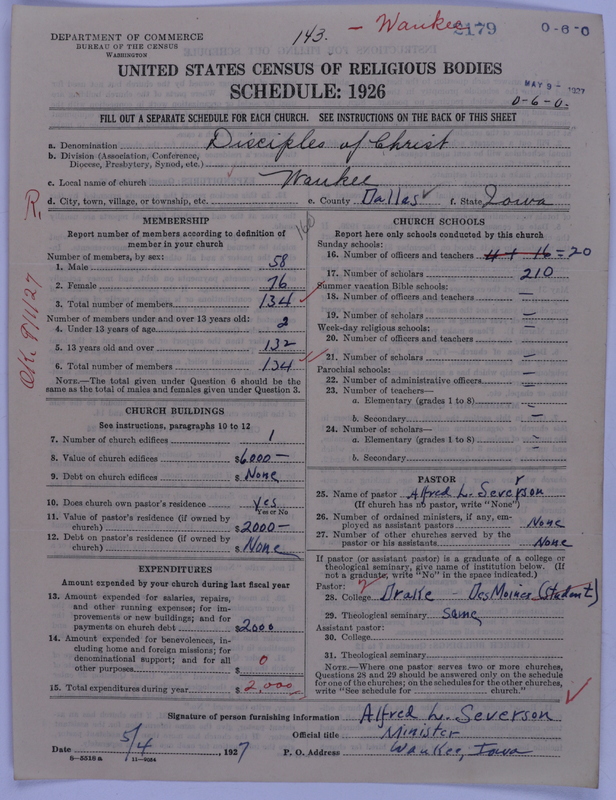 143. — Waukee 2179 0-6-0
DEPARTMENT OF COMMERCE
BUREAU OF THE CENSUS
WASHINGTON
UNITED STATES CENSUS OF RELIGIOUS BODIES
SCHEDULE: 1926
MAY 9 - 1927
0-6-0.
FILL OUT A SEPARATE SCHEDULE FOR EACH CHURCH. SEE INSTRUCTIONS ON THE BACK OF THIS SHEET
a. Denomination Disciples of Christ
b. Division (Association, Conference, Diocese, Presbytery, Synod, etc.)
c. Local name of church Waukee
d. City, town, village, or township, etc. e. County Dallas f. State Iowa
R.
O.K. 9/11/27
160
MEMBERSHIP
Report number of members according to definition of
member in your church
Number of members, by sex:
1. Male 58
2. Female 76
3. Total number of members 134
Number of members under and over 13 years old:
4. Under 13 years of age 2
5. 13 years old and over 132
6. Total number of members 134
NOTE.—The total given under Question 6 should be
same as the total of males and females given under Question 3.
CHURCH BUILDINGS
See instructions, paragraphs 10 to 12
7. Number of church edifices 1
8. Value of church edifices $6000—
9. Debt on church edifices $ None
10. Does church own pastor's residence yes
Yes or No
11. Value of pastor's residence (if owned by
church) $2000—
12. Debt on pastor's residence (if owned by
church) $ None
EXPENDITURES
Amount expended by your church during last fiscal year
13. Amount expended for salaries, repairs,
and other running expenses; for im-
provements or new buildings; and for
payments on church debt $2000
14. Amount expended for benevolences, in-
cluding home and foreign missions; for
denominational support; and for all
other purposes $ 0
15. Total expenditures during year $ 2,000
CHURCH SCHOOLS
Report here only schools conducted by this church
Sunday schools:
16. Number of officers and teachers 4 + 16 = 20
17. Number of scholars 210
Summer vacation Bible schools:
18. Number of officers and teachers —
19. Number of scholars —
Week-day religious schools: —
20. Number of officers and teachers
21. Number of scholars —
Parochial schools: —
22. Number of administrative officers —
23. Number of teachers—
a. Elementary (grades 1 to 8) —
b. Secondary —
24. Number of scholars—
a. Elementary (grades 1 to 8) —
b. Secondary —
PASTOR
25. Name of pastor Alfred L. Severson
(If church has no pastor, write "None")
26. Number of ordained ministers, if any, em-
ployed as assistant pastors None
27. Number of other churches served by the
pastor or his assistants None
If pastor (or assistant pastor) is a graduate of a college or
theological seminary, give name of institution below. (If
not a graduate, write "No" in the space indicated.)
Pastor:
28. College Drake – Des Moines (student)
29. Theological seminary Same
Assistant pastor:
30. College
31. Theological seminary
NOTE.—Where one pastor serves two or more churches,
Questions 28 and 29 should be answered only on the schedule
for one of the churches; on the schedules for the other churches,
write "See schedule for church."
Signature of person furnishing information Alfred L. Severson
Official title Minister
Date 5/4, 1927 P. O. Address Waukee, Iowa
8—5518a 11—9034